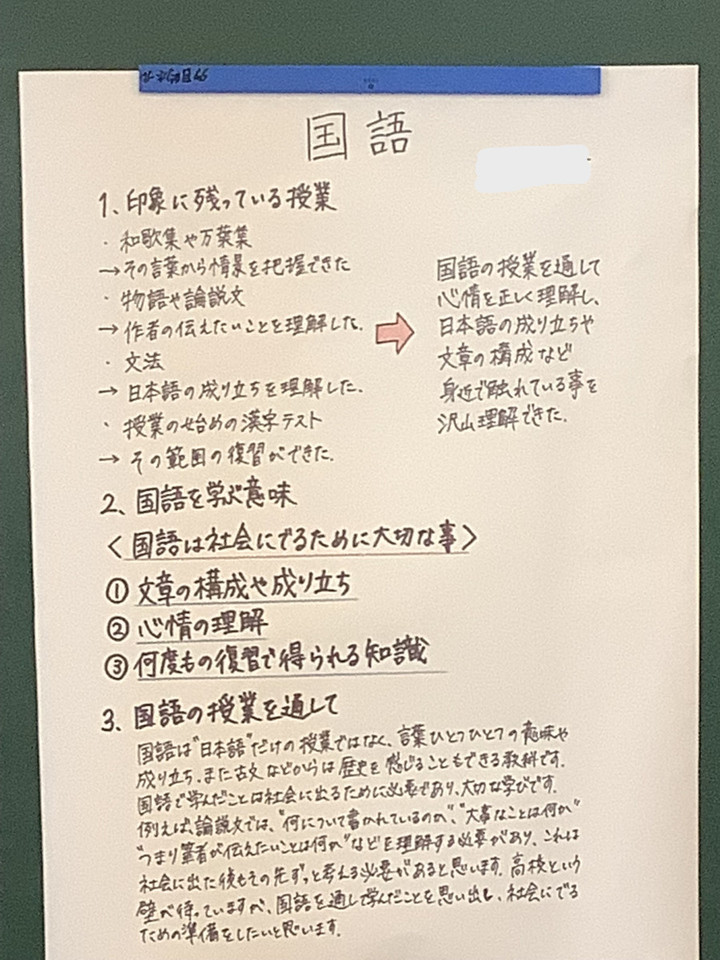 多目的ホール
国語
1、印象に残っている授業
・和歌集や万葉集
→その言葉から情景を把握できた
・物語や論説文
→作者の伝えたいことを理解した。
・文法
→日本語の成り立ちを理解した。
・授業の始めの漢字テスト
→その範囲の復習ができた。
国語の授業を通して
心情を正しく理解し、
日本語の成り立ちや
文章の構成など
身近で触れている事を
沢山理解できた。
2、国語を学ぶ意味
〈国語は社会にでるために大切な事〉
①文章の構成や成り立ち
②心情の理解
③何度もの復習で得られる知識
3、国語の授業を通して
国語は"日本語"だけの授業ではなく、言葉ひとつひとつの意味や
成り立ち、また古文などからは歴史を感じることもできる教科です。
国語で学んだことは社会に出るために必要であり、大切な学びです。
例えば、論説文では、"何について書かれているのか"、"大事なことは何か"
"つまり筆者が伝えたいことは何か"などを理解する必要があり、これは
社会に出た後もその先ずっと考える必要があると思います。高校という
壁が待っていますが、国語を通して学んだことを思い出し、社会にでる
ための準備をしたいと思います。